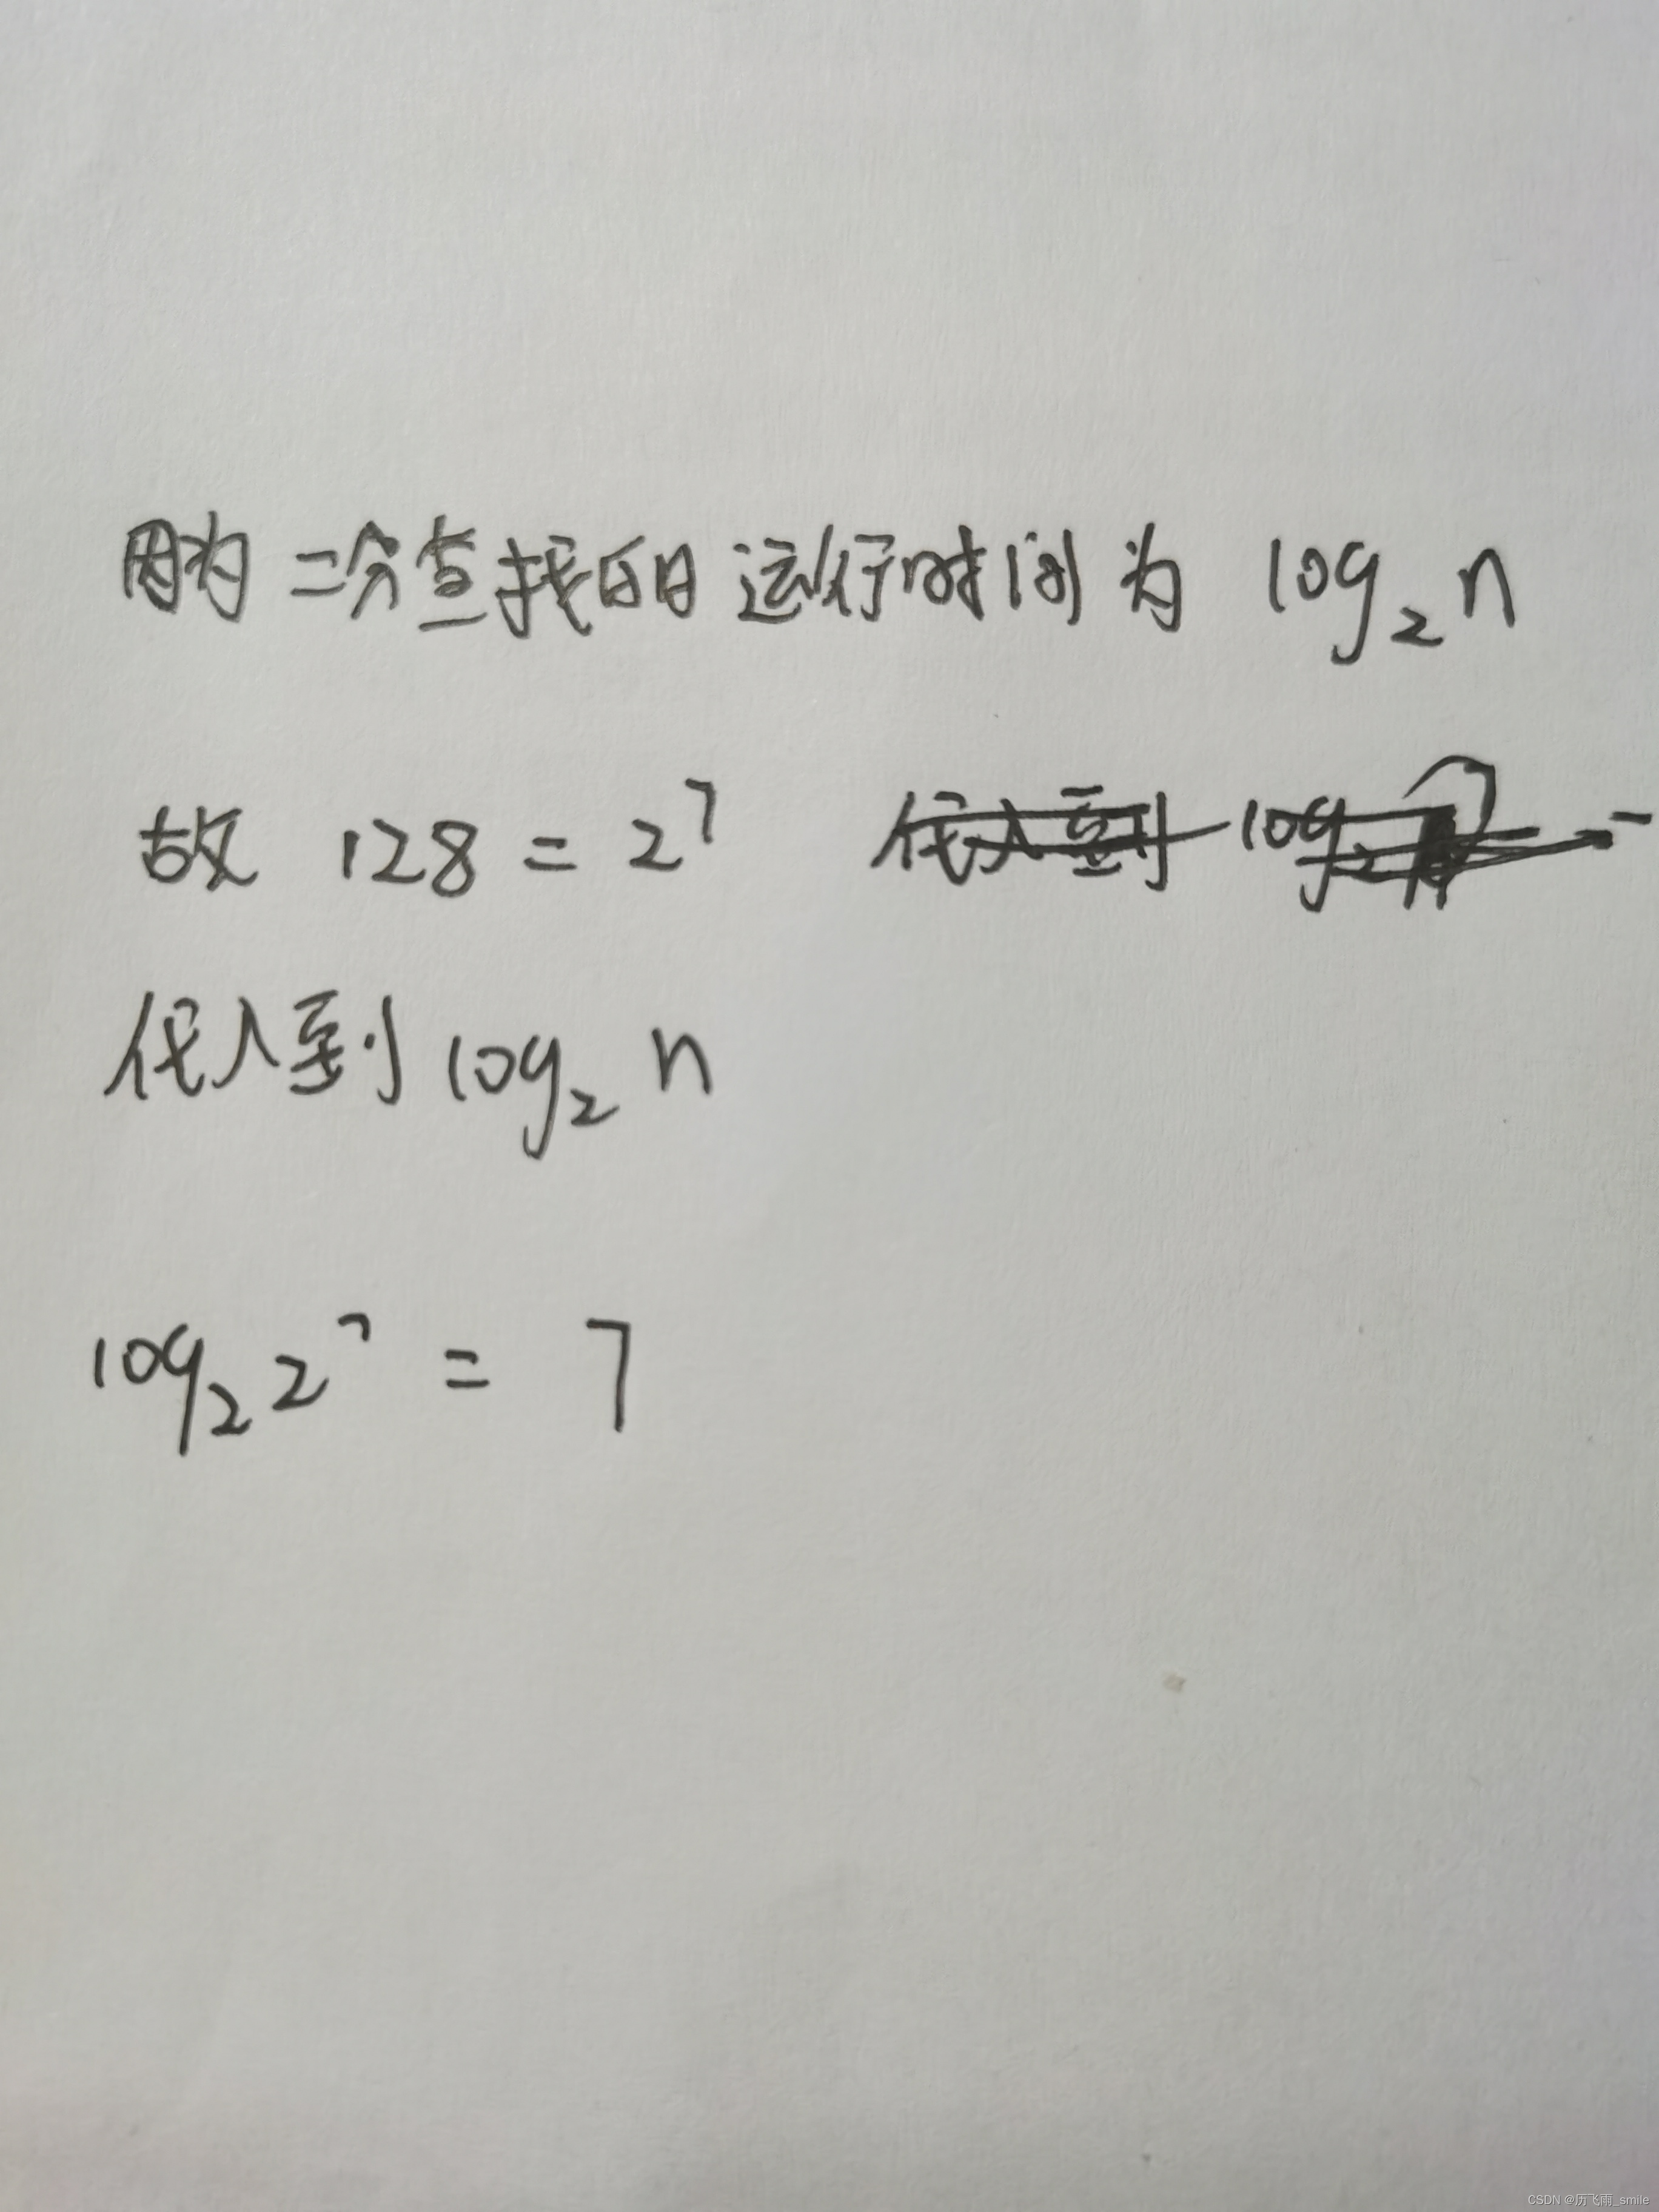 因为 二分查找的 运行时间 为 log₂ n
故 128 = 2⁷ 代入到 log₂
代入到 log₂ n
log₂ 2⁷ = 7
CSDN @历飞雨_smile